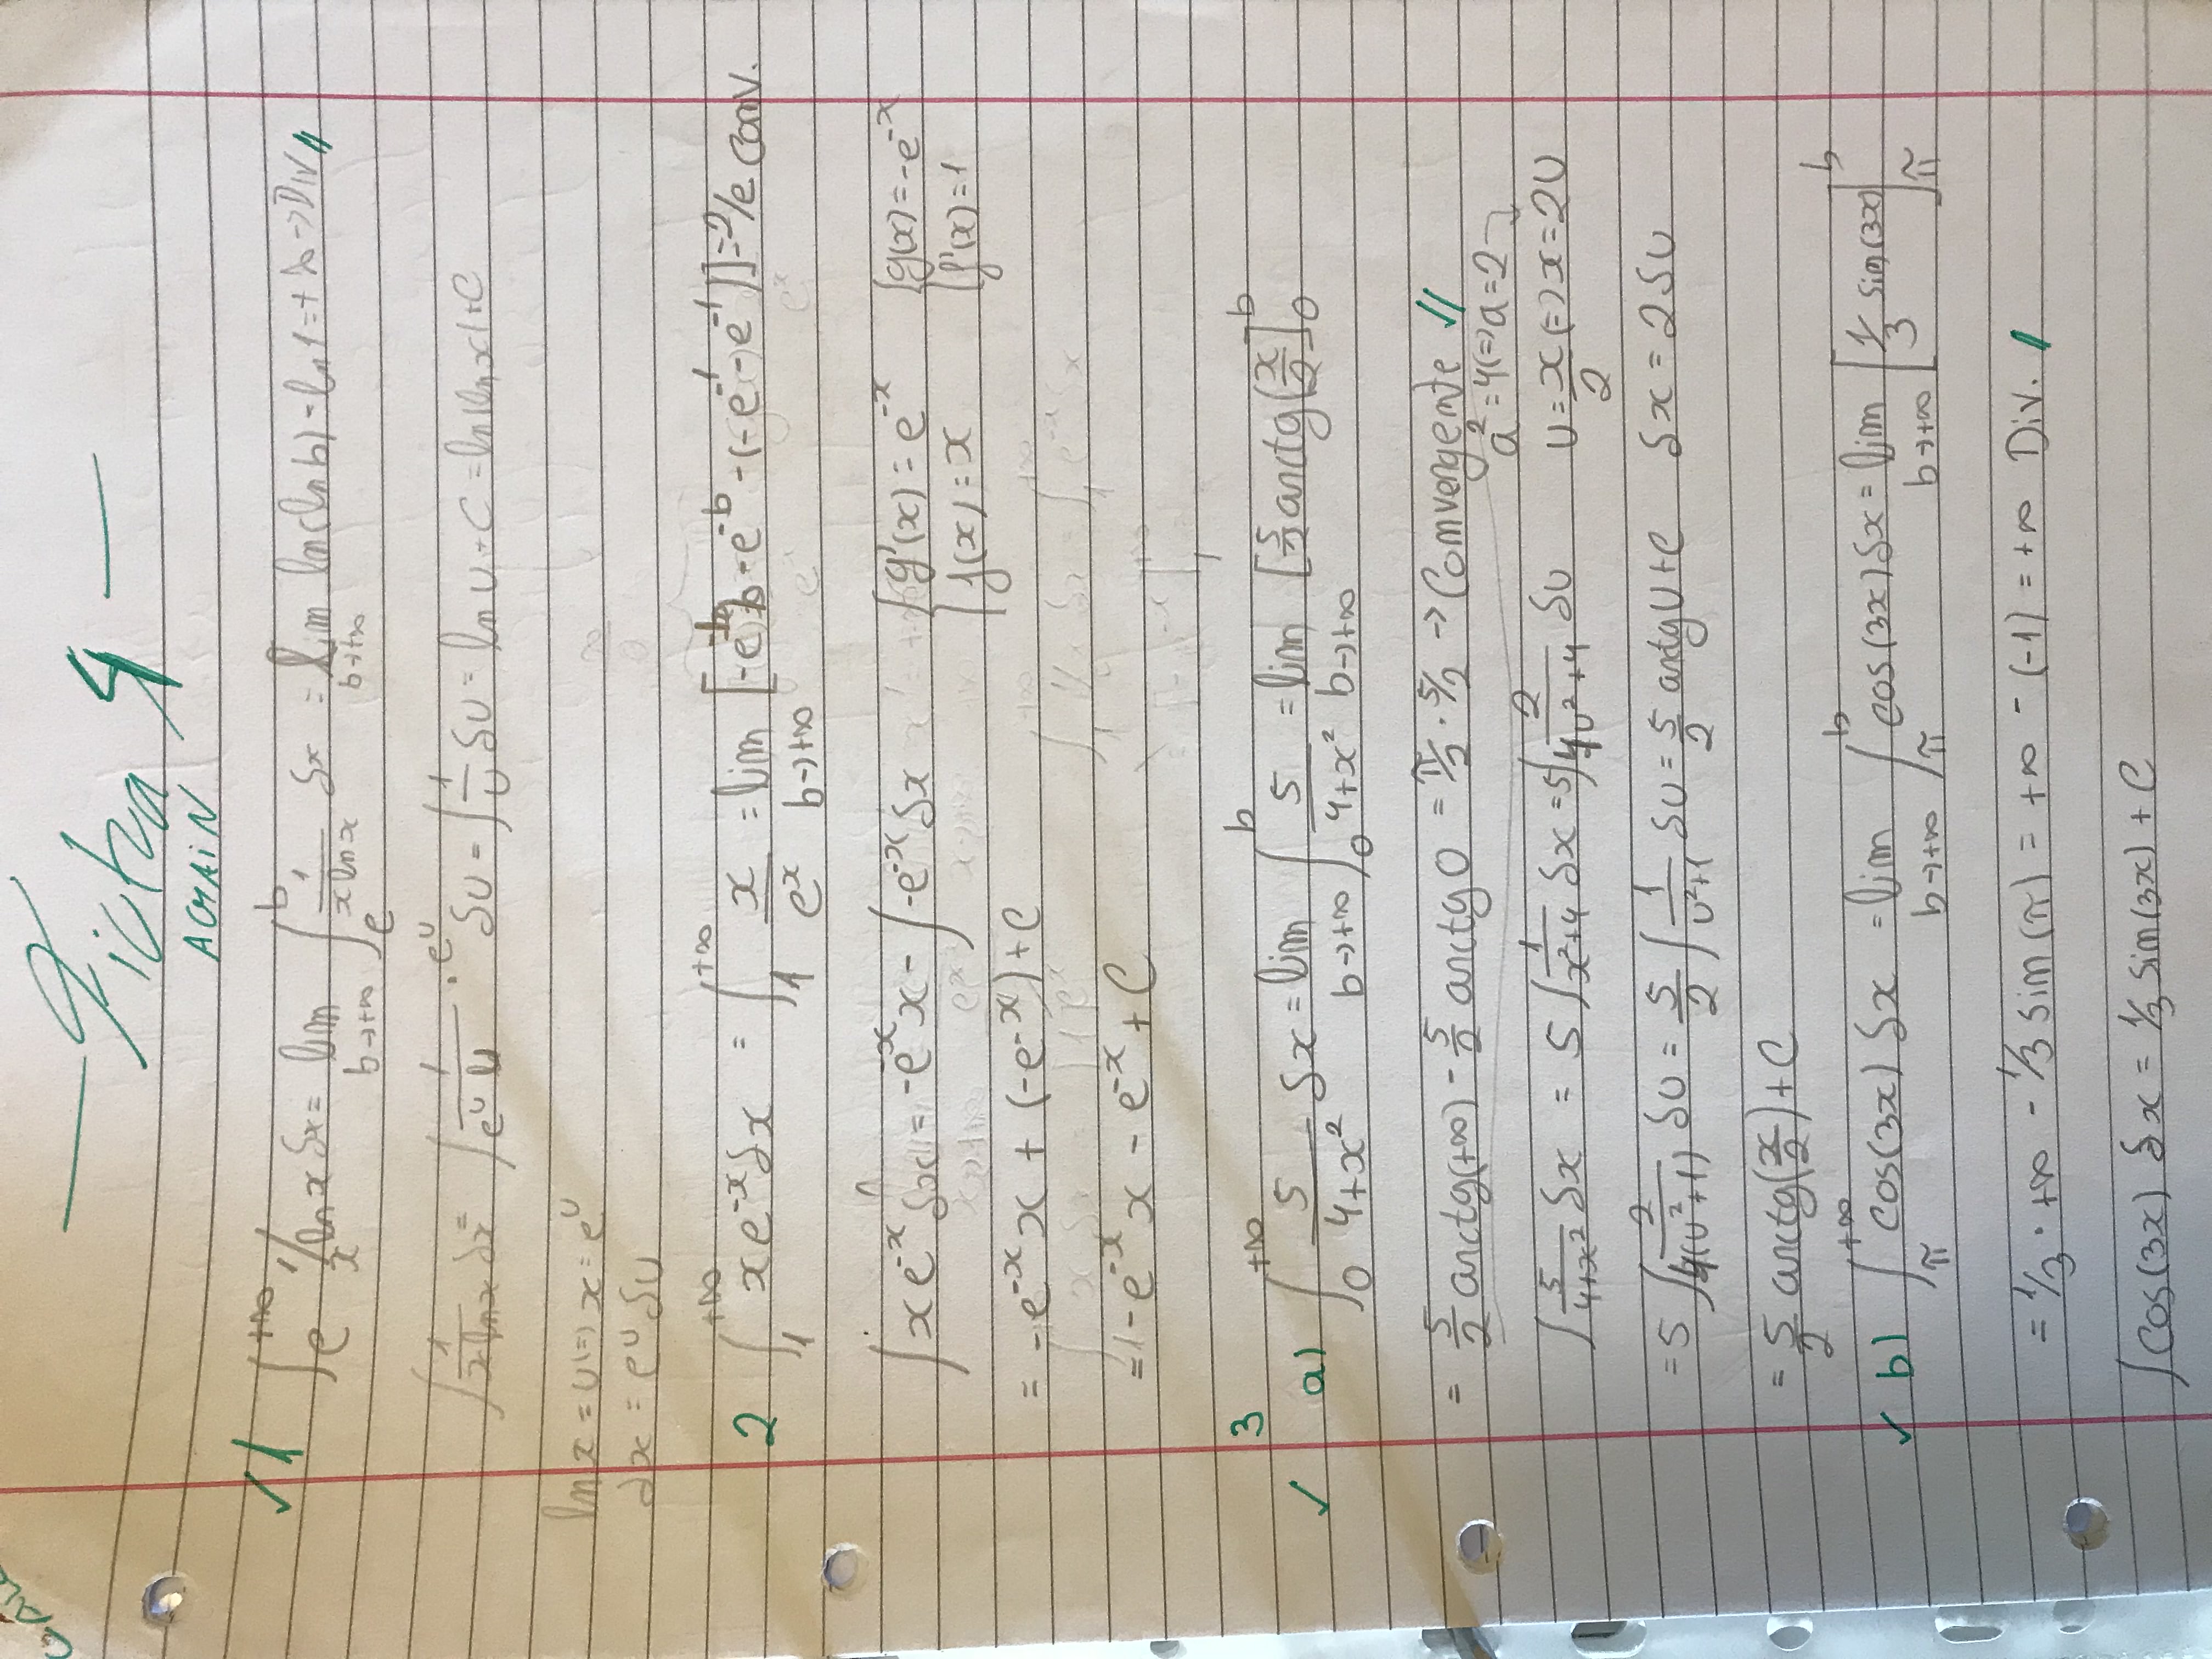 — Ficha 4 —
AGAIN
✓1 ∫_e^{+∞} 1/x ln x δx = lim_{b→+∞} ∫_e^b 1/(x ln x) δx = lim_{b→+∞} ln(ln b) - ln 1 = +∞ → Div //
∫ 1/(x ln x) δx = ∫ 1/(e^u u) · e^u δu = ∫ 1/u δu = ln u + C = ln|ln x| + C
ln x = u (=) x = e^u
δx = e^u δu
2 ∫_1^{+∞} x e^{-x} δx = ∫_1^{+∞} x/e^x = lim_{b→+∞} [-e^{-b} b - e^{-b} - (-e^{-1} - e^{-1})] = 2/e Conv.
∫ x e^{-x} δx = -e^{-x} x - ∫ -e^{-x} δx { g'(x) = e^{-x} { g(x) = -e^{-x}
{ f(x) = x { f'(x) = 1
= -e^{-x} x + (-e^{-x}) + C
= 1 - e^{-x} x - e^{-x} + C
3
✓ a) ∫_0^{+∞} 5/(4+x²) δx = lim_{b→+∞} ∫_0^b 5/(4+x²) = lim_{b→+∞} [5/2 arctg(x/2]_0^b
= 5/2 arctg(+∞) - 5/2 arctg 0 = π/2 · 5/2 → Convergente //
a² = 4 (=) a = 2
∫ 5/(4+x²) δx = 5 ∫ 1/(x²+4) δx = 5 ∫ 2/(4u²+4) δu u = x/2 (=) x = 2u
= 5 ∫ 2/(4(u²+1)) δu = 5/2 ∫ 1/(u²+1) δu = 5/2 arctg u + C δx = 2 δu
= 5/2 arctg(x/2) + C
✓ b) ∫_π^{+∞} cos(3x) δx = lim_{b→+∞} ∫_π^b cos(3x) δx = lim_{b→+∞} [1/3 sin(3x)]_π^b
= 1/3 · +∞ - 1/3 sin(π) = +∞ - (-1) = +∞ Div. /
∫ cos(3x) δx = 1/3 sin(3x) + C